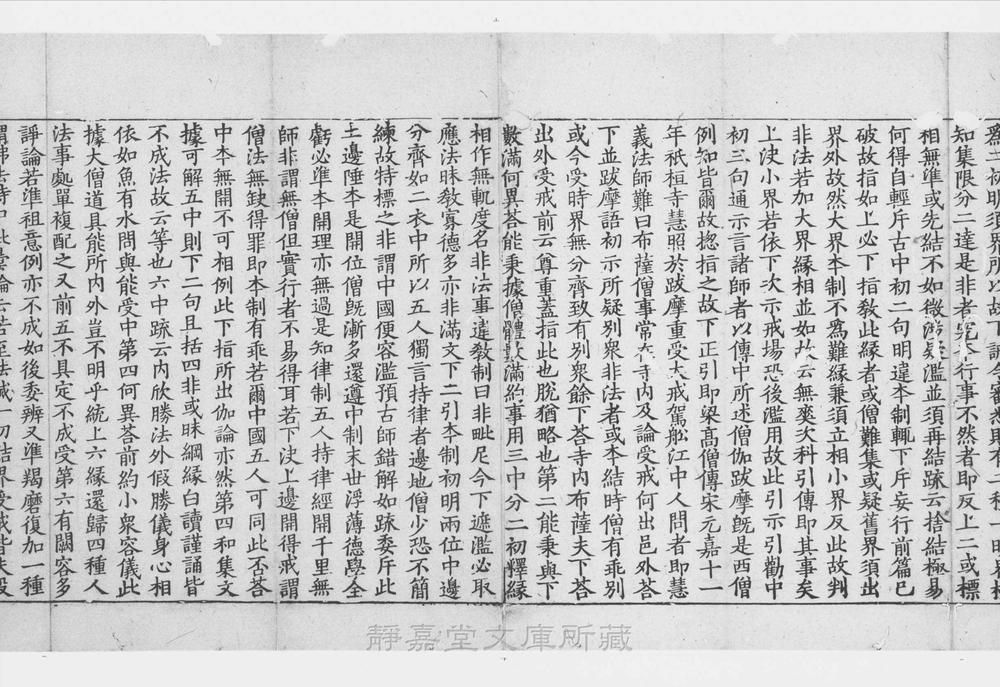 知集限分二達是非者究今行事不然者即反上二或標
相無準或先結不如微涉疑濫並須再結疏云捨結極易
何得自輕斥古中初二句明違本制輒下斥妄行前篇已
破故指如上必下指教此緣者或僧難集或疑舊界須出
界外故然大界本制不為難緣兼須立相小界反此故判
非法若加大界緣相並如故云無爽次科引傳即其事矣
上決小界若依下次示戒場恐後濫用故此引示引勸中
初三句通示言諸師者以傳中所述僧伽跋摩既是西僧
例知皆爾故揔指之故下正引即梁高僧傳宋元嘉十一
年祇桓寺慧照於跋摩重受大戒駕舩江中人問者即慧
義法師難曰布薩僧事常在寺內及論受戒何出邑外荅
下並跋摩語初示所疑別衆非法者或本結時僧有乖別
或今受時界無分齊致有別衆餘下荅寺內布薩夫下荅
出外受戒前云尊重蓋指此也脫猶略也第二能秉與下
數滿何異荅能秉據僧體數滿約事用三中分二初釋緣
相作無軌度名非法事違敎制曰非毗尼今下遮濫必取
應法昧敎寡德多亦非滿文下二引本制初明兩位中邊
分齊如二衣中所以五人獨言持律者邊地僧少恐不簡
練故特標之非謂中國便容濫預古師錯解如疏委斥此
土邊陲本是開位僧旣漸多還遵中制末世浮薄德學全
虧必準本開理亦無過是知律制五人持律經開千里無
師非謂無僧但實行者不易得耳若下決上邊開得戒謂
僧法無缺得罪即本制有乖若爾中國五人可同此否荅
中本無開不可相例此下指所出伽論亦然第四和集文
據可解五中則下二句且括四非或昧綱緣白讀謹誦皆
不成法故云等也六中疏云內欣勝法外假勝儀身心相
依如魚有水問與能受中第四何異荅前約小衆容儀此
據大僧道具能所內外豈不明乎統上六緣還歸四種人
法事處單複配之又前五不具定不成受第六有闕容多
諍論若準祖意例亦不成如後委辨又準羯磨復加一種
靜嘉堂文庫所藏